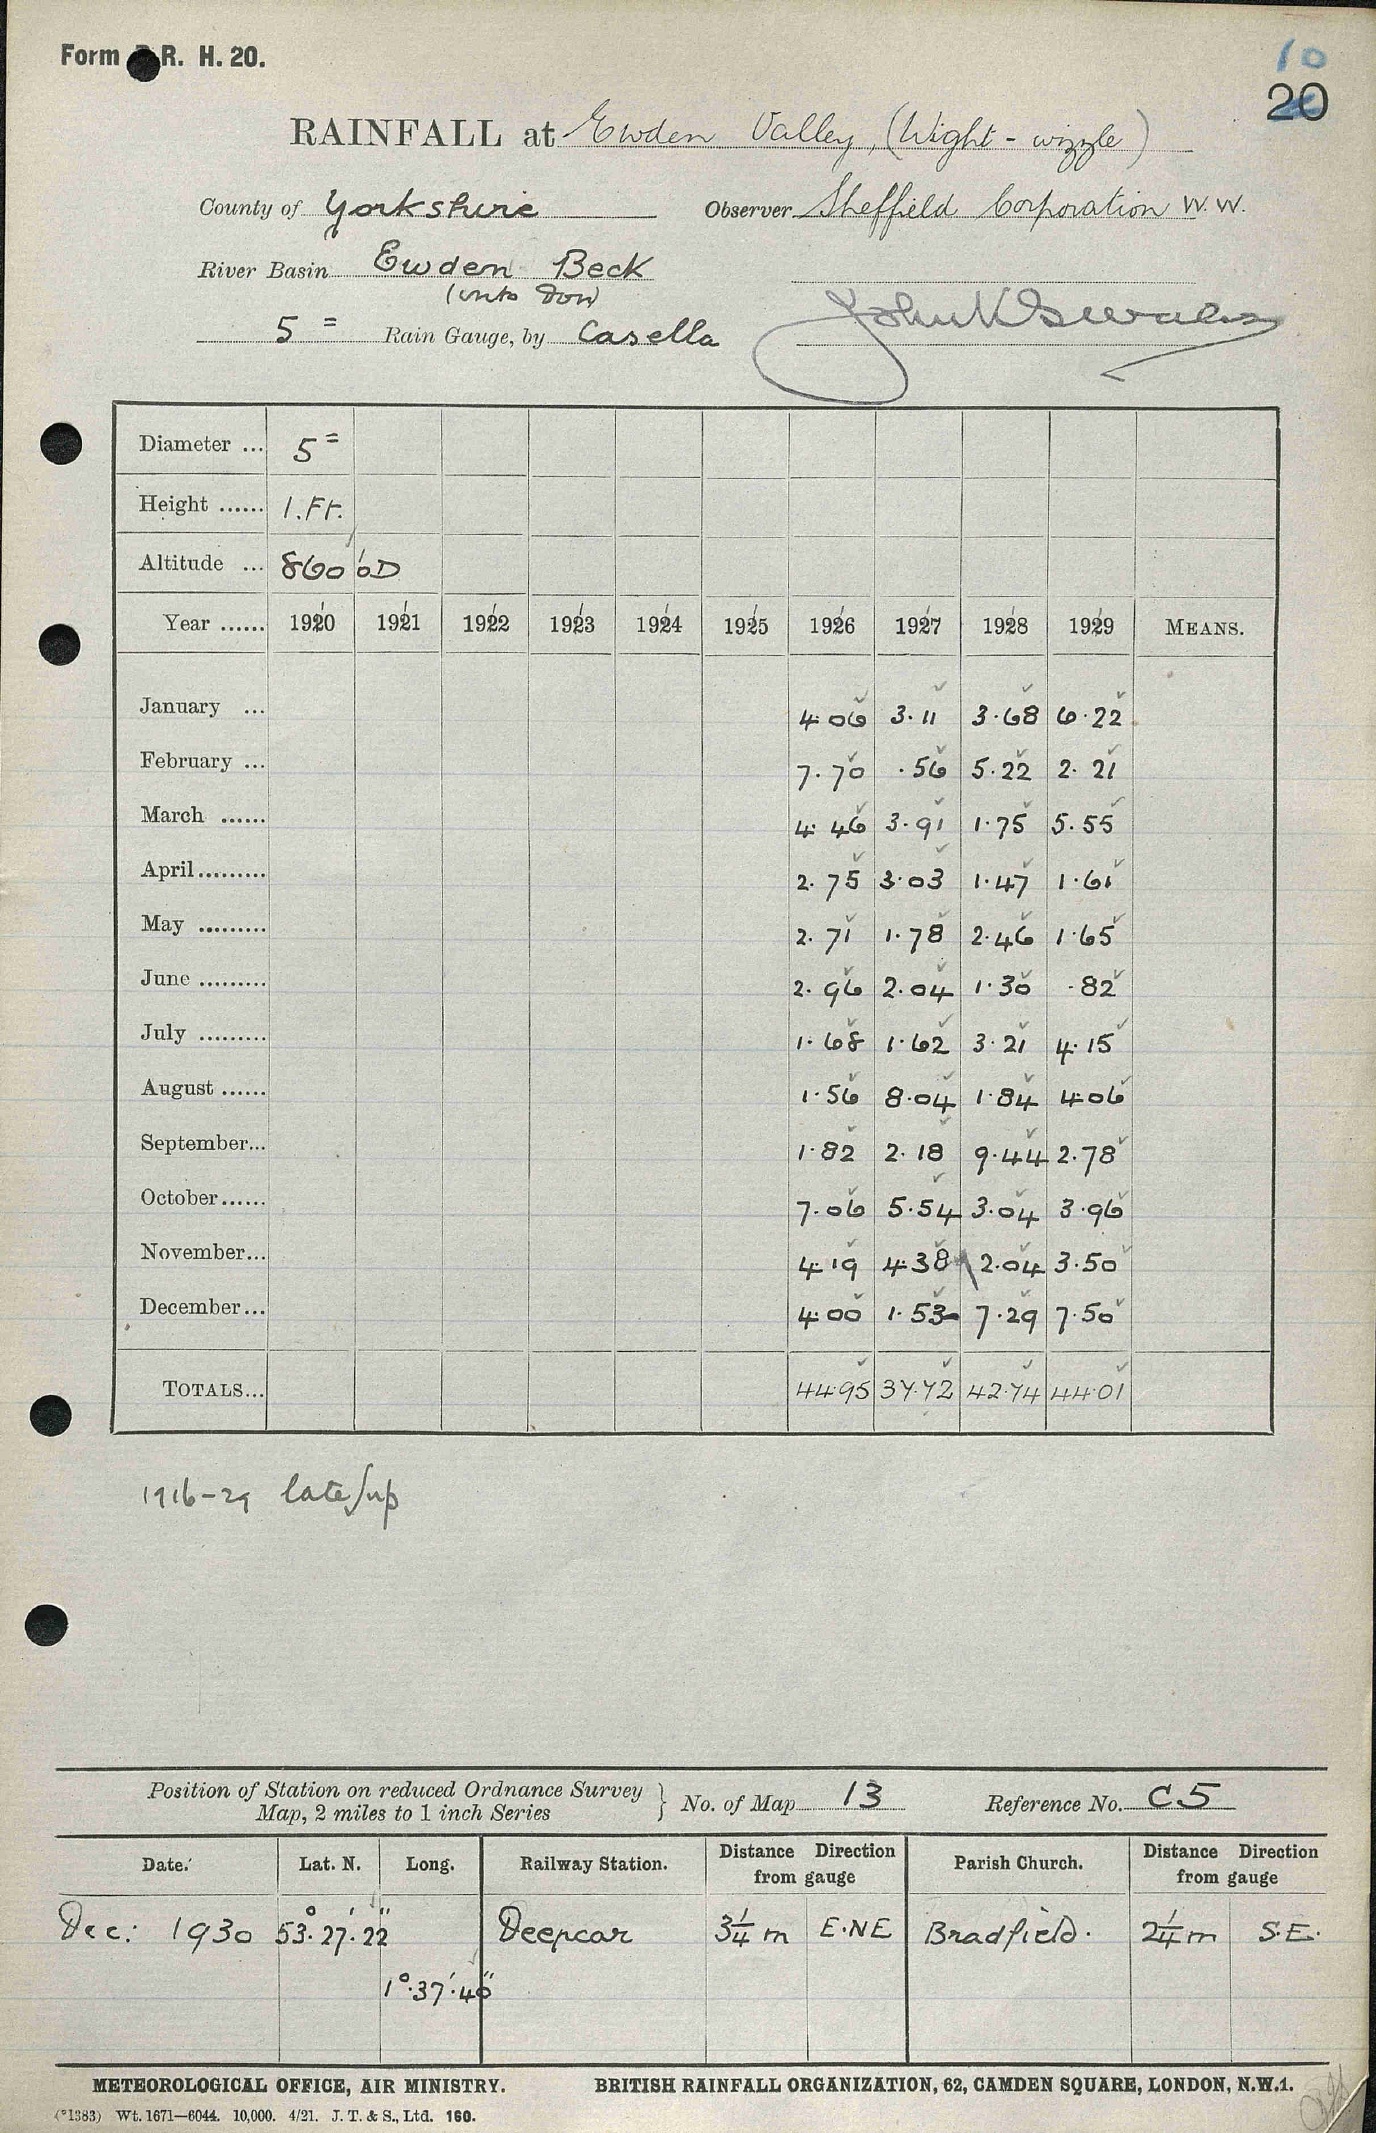 Form B.R. H. 20.
10
20
RAINFALL at Ewden Valley, (Wight-wizzle)
County of Yorkshire Observer Sheffield Corporation W.W.
River Basin Ewden Beck
(into Don)
5" Rain Gauge, by Casella
Diameter ... 5"
Height ...... 1.Ft.
Altitude ... 860' OD
Year ...... 1920 1921 1922 1923 1924 1925 1926 1927 1928 1929 MEANS.
January ... 4.06 3.11 3.68 6.22
February ... 7.70 .56 5.22 2.21
March ...... 4.46 3.91 1.75 5.55
April ......... 2.75 3.03 1.47 1.61
May ......... 2.71 1.78 2.46 1.65
June ......... 2.96 2.04 1.30 .82
July ......... 1.68 1.62 3.21 4.15
August ...... 1.56 8.04 1.84 4.06
September... 1.82 2.18 9.44 2.78
October ...... 7.06 5.54 3.04 3.96
November... 4.19 4.38 2.04 3.50
December... 4.00 1.53 7.29 7.50
TOTALS... 44.95 37.72 42.74 44.01
1916-29
Position of Station on reduced Ordnance Survey
Map, 2 miles to 1 inch Series } No. of Map 13 Reference No. C5
Date. Lat. N. Long. Railway Station. Distance Direction from gauge Parish Church. Distance Direction from gauge
Dec: 1930 53°.27'.22" Deepcar 3¼ m E.NE Bradfield. 2¼ m S.E.
1°.37'.40"
METEOROLOGICAL OFFICE, AIR MINISTRY. BRITISH RAINFALL ORGANIZATION, 62, CAMDEN SQUARE, LONDON, N.W.1.
(*1383) Wt. 1671—6044. 10,000. 4/21. J. T. & S., Ltd. 160.